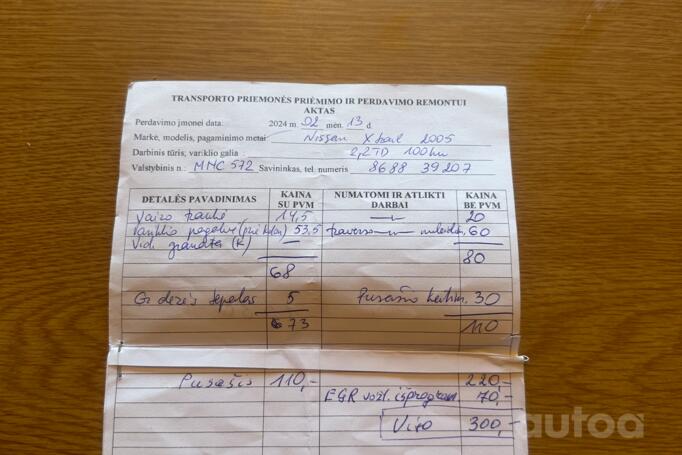 TRANSPORTO PRIEMONĖS PRIĖMIMO IR PERDAVIMO REMONTUI
AKTAS
Perdavimo įmonei data: 2024 m. 02 mėn. 13 d
Markė, modelis, pagaminimo metai Nissan Xtrail 2005
Darbinis tūris, variklio galia 2,2TD 100kw
Valstybinis n.: MMC 572 Savininkas, tel. numeris 8688 39207
DETALĖS PAVADINIMAS KAINA SU PVM NUMATOMI IR ATLIKTI DARBAI KAINA BE PVM
Vairo traukė 14,5 20
Variklio pagalvė 53,5 60
Vid. granata (K) —
80
68
Gr dėžės tepalas 5 Pusašio keitim. 30
73 110
Pusašis 110,- 220,-
EGR vožt. 70,-
Viso 300,-
autoa